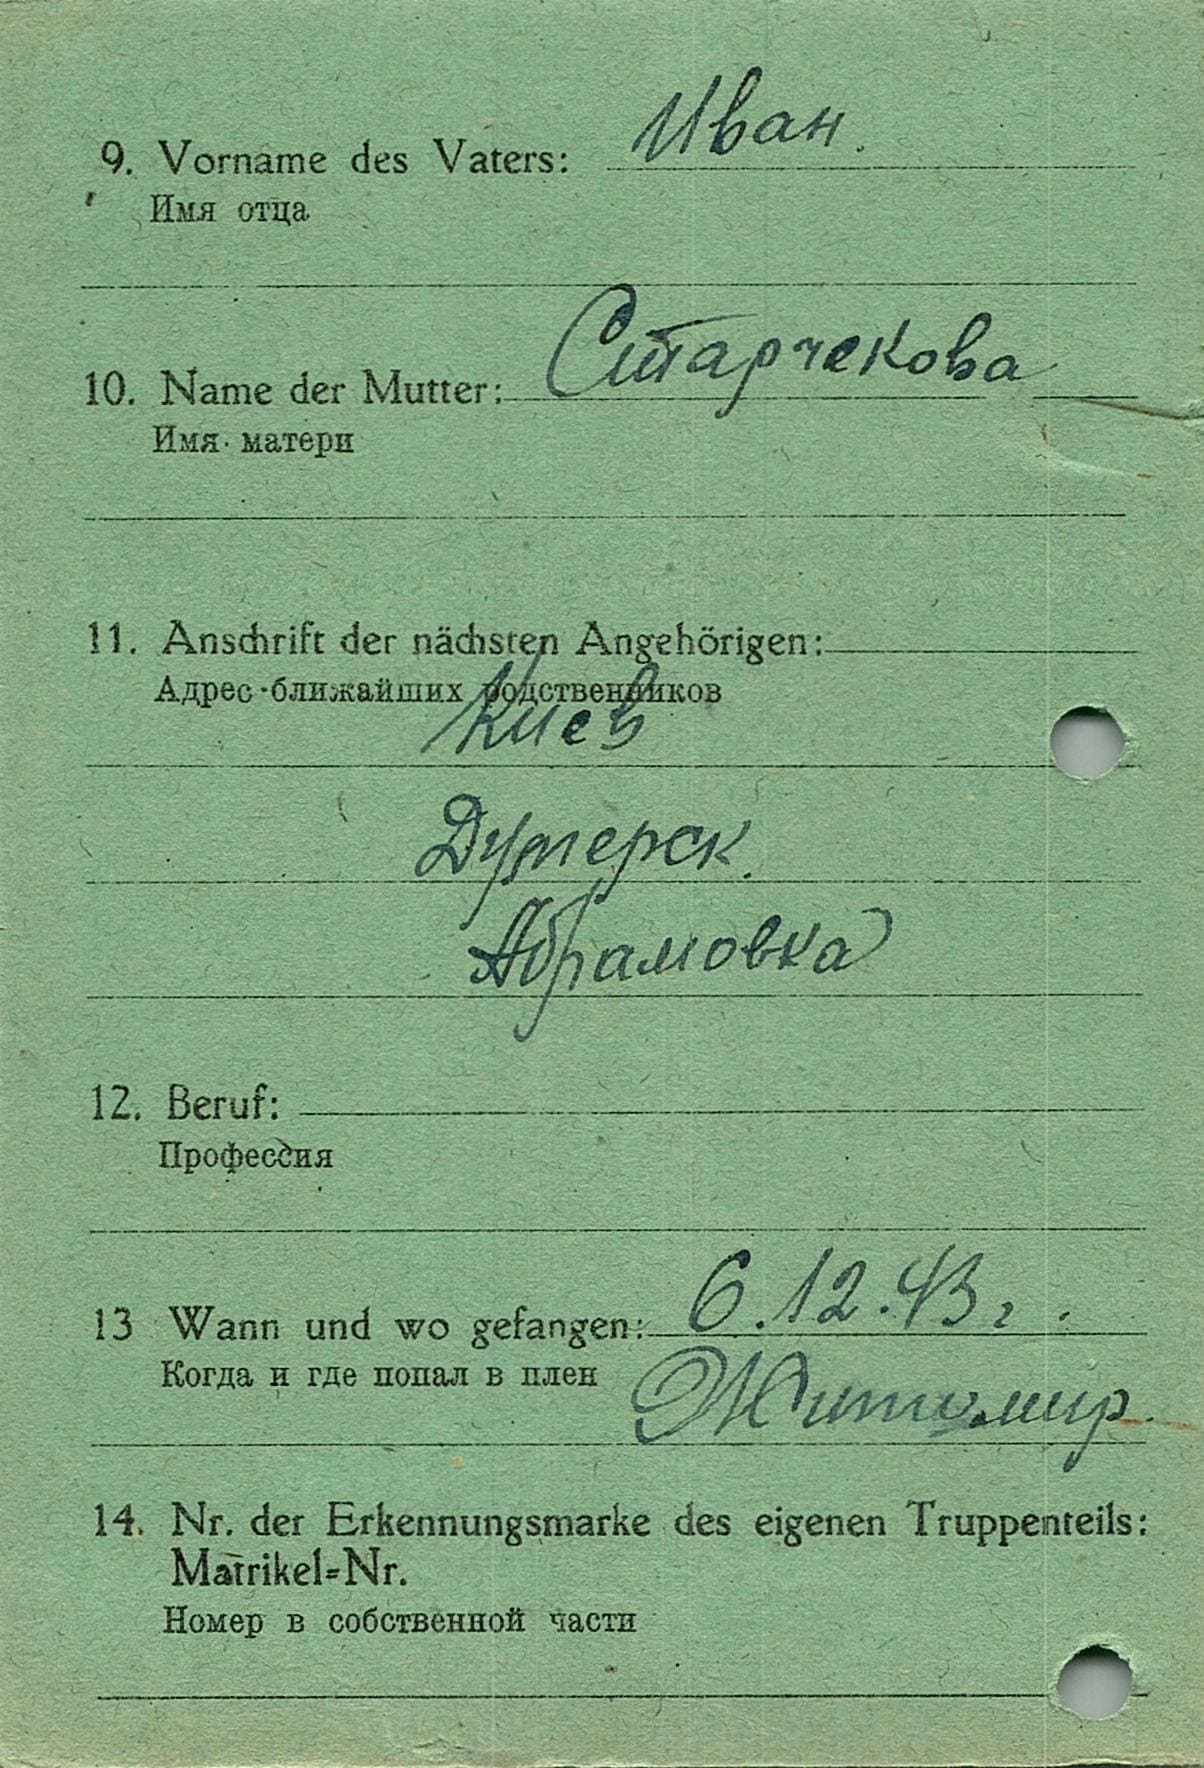 9. Vorname des Vaters: Иван.
Имя отца
10. Name der Mutter: Старчекова
Имя матери
11. Anschrift der nächsten Angehörigen:
Адрес ближайших родственников
Киев
Думерск.
Абрамовка
12. Beruf:
Профессия
13 Wann und wo gefangen: 6.12.43 г.
Когда и где попал в плен
Житомир.
14. Nr. der Erkennungsmarke des eigenen Truppenteils:
Matrikel=Nr.
Номер в собственной части